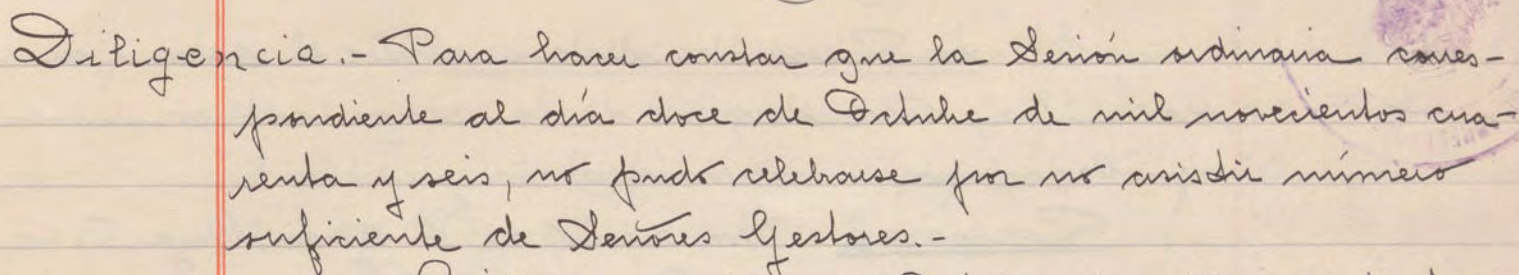 Diligencia.- Para hacer constar que la Sesión ordinaria corres-
pondiente al día doce de Octubre de mil novecientos cua-
renta y seis, no pudo celebrarse por no asistir número
suficiente de Señores Gestores.-